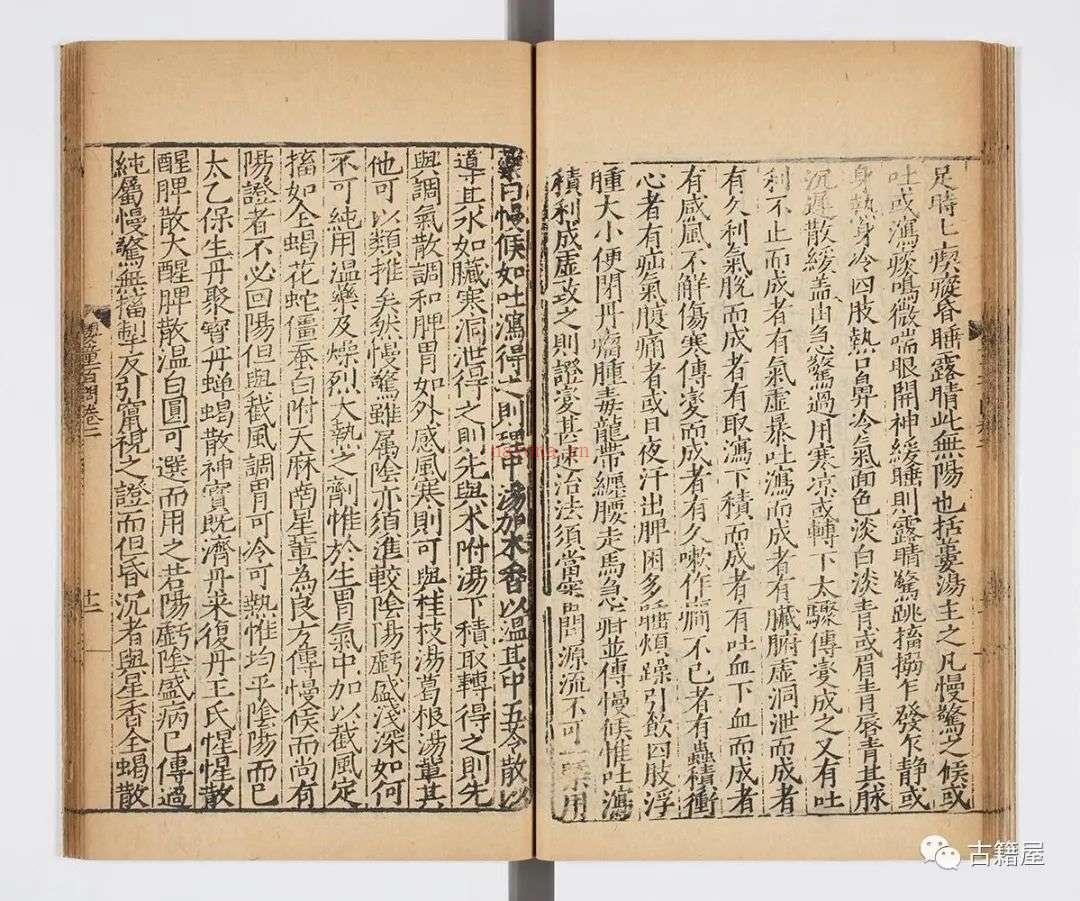 足時上瘈瘲昏睡露睛此無陽也括蔞湯主之凡慢驚之候或
吐或瀉瘈鳴微喘眼開神緩睡則露睛驚跳搐搦乍發乍靜或
身熱身冷四肢熱口鼻冷氣面色淡白淡青或眉青唇青其脉
沉遲散緩盖由急驚過用寒凉或轉下太驟傳變成之又有吐
利不止而成者有氣虛暴吐瀉而成者有臟腑虛洞泄而成者
有久利氣脫而成者有取瀉下積而成者有吐血下血而成者
有感風不解傷寒傳變而成者有久嗽作癇不已者有蟲積衝
心者有疝氣腹痛者或日夜汗出脾困多睡煩躁引飲四肢浮
腫大小便閉丹瘤腫毒龍帶纏腰走馬急疳並傳慢候惟吐瀉
積利成虛致之則證變甚速治法須當審問源流不可一槩用
藥曰慢候如吐瀉得之則理中湯加木香以温其中五苓散以
導其水如臟寒洞泄得之則先與术附湯下積取轉得之則先
與調氣散調和脾胃如外感風寒則可與桂枝湯葛根湯軰其
他可以類推矣然慢驚雖属陰亦須准較陰陽虧盛淺深如何
不可純用温藥及燥烈大熱之劑惟於生胃氣中加以截風定
搐如全蝎花蛇僵蚕白附天麻南星軰為良方傳慢候而尚有
陽證者不必回陽但與截風調胃可冷可熱惟均平陰陽而已
太乙保生丹聚寳丹蝉蝎散神寳既濟丹来復丹王氏惺惺散
醒脾散大醒脾散温白圓可選而用之若陽虧陰盛病已傳過
純屬慢驚無搐掣反引竄視之證而但昏沉者與星香全蝎散
嬰童百問卷二
十二
古籍屋